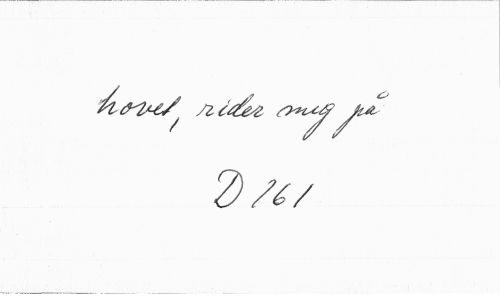 hovet, rider mig på
D 161